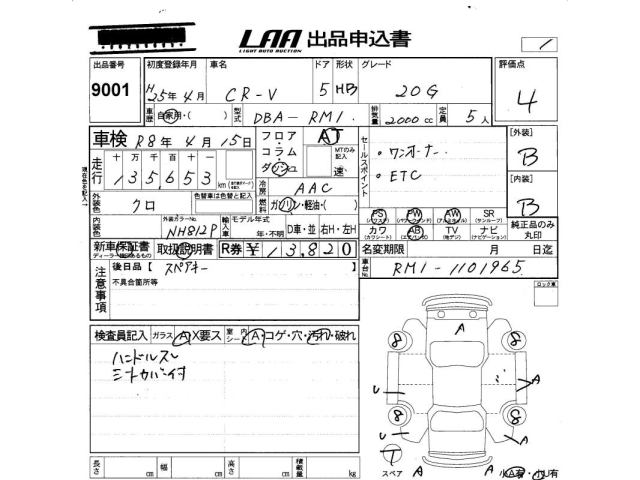 LAA 出品申込書
LIGHT AUTO AUCTION
1
出品番号 9001
初度登録年月 H25年4月
車名 CR-V
ドア 5
形状 HB
グレード 20G
評価点 4
車歴 自家用・( )
型式 DBA-RM1
排気量 2000cc
定員 5人
車検 R8年4月15日
フロア・コラム・ダッシュ
AT
MTのみ記入 速
セールスポイント
・ワンオーナー
・ETC
[外装] B
[内装] B
走行 十万千百十
135,653 km
冷房 AAC
燃料 ガソリン・軽油・( )
外装色 クロ
色替車は色替と記入
内装色
外装カラーNo. NH812P
輸入車
モデル年式 年・不明
D車・並
右H・左H
PS (パワステ)
PW (パワーウィンド)
AW (アルミホイル)
SR (サンルーフ)
カワ (カワシート)
AB (エアバック)
TV (地デジ)
ナビ (ナビゲーション)
純正品のみ丸印
新車保証書
取扱説明書
R券 ¥13,820
名変期限 月 日迄
車台No. RM1-1101965
注意事項
後日品【 スペアキー 】
不具合箇所等
ロック車
検査員記入
ガラス A X要ス
室内 A・コゲ・穴・汚れ・破れ
ハンドルスレ
シートカバー付
A
8 8
U A
8 8
U A
T
スペア
A A
小A有・小U有
長さ cm 幅 cm 高さ cm 積載量 kg